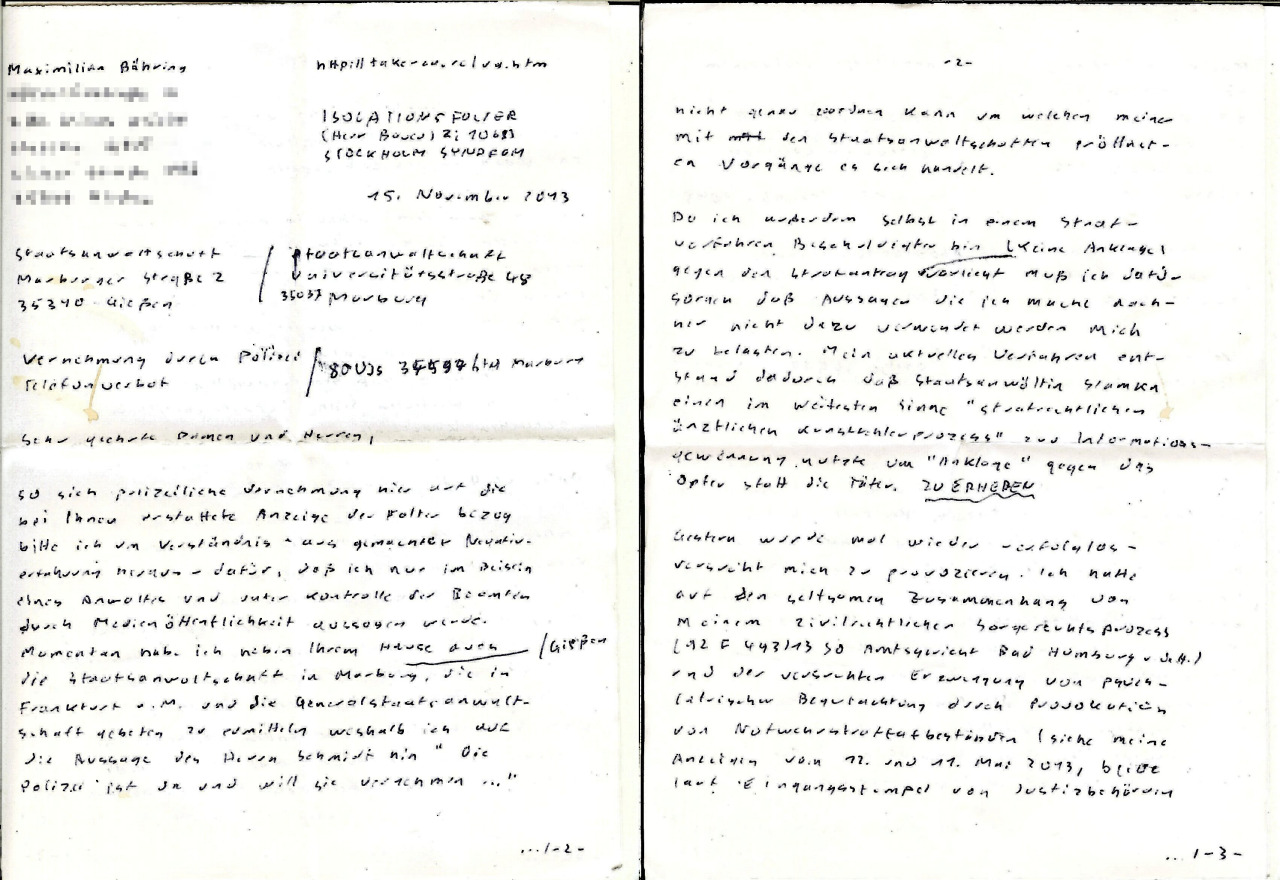 Maximilian Bähring
ISOLATIONSFOLTER
STOCKHOLM SYNDROM
15. November 2013
Staatsanwaltschaft
Marburger Straße 2
35390 Gießen
/ Staatsanwaltschaft
Universitätsstraße 48
35037 Marburg
Vernehmung durch Polizei
Telefonverbot
/ StA Marburg
Sehr geehrte Damen und Herren,
so sich polizeiliche Vernehmung hier auf die
bei Ihnen erstattete Anzeige der Folter bezog
bitte ich um Verständnis - aus gemachter Negativ-
erfahrung heraus - dafür, daß ich nur im Beisein
eines Anwaltes und unter Kontrolle der Beamten
durch Medienöffentlichkeit aussagen werde.
Momentan habe ich neben Ihrem Hause auch /Gießen
die Staatsanwaltschaft in Marburg, die in
Frankfurt a.M. und die Generalstaatsanwalt-
schaft gebeten zu ermitteln weshalb ich auf
die Aussage des Herrn Schmidt hin "Die
Polizei ist da und will sie vernehmen ..."
.../-2-
-2-
nicht genau zuordnen kann um welchen meiner
mit den Staatsanwaltschaften eröffnet-
en Vorgänge es sich handelt.
Da ich außerdem selbst in einem Straf-
verfahren Beschuldigter bin (keine Anklage)
gegen den Strafantrag vorliegt muß ich dafür
sorgen daß Aussagen die ich mache nach-
her nicht dazu verwendet werden mich
zu belasten. Mein aktuelles Verfahren ent-
stand dadurch daß Staatsanwältin
einen im weitesten Sinne "strafrechtlichen
ärztlichen Kunstfehlerprozess" zur Informations-
gewinnung nutzte um "Anklage" gegen das
Opfer statt die Täter. ZU ERHEBEN
Gestern wurde mal wieder erfolglos
versucht mich zu provozieren. Ich hatte
auf den seltsamen Zusammenhang von
meinem zivilrechtlichen Sorgerechtsprozess
(92 F 493/13 SO Amtsgericht Bad Homburg v.d.H.)
und der versuchten Erzwingung von psych-
iatrischer Begutachtung durch Provokation
von Notwehrstraftatbeständen (siehe meine
Anzeigen vom 12. und 11. Mai 2013, beide
laut Eingangsstempel von Justizbehörden
.../-3-